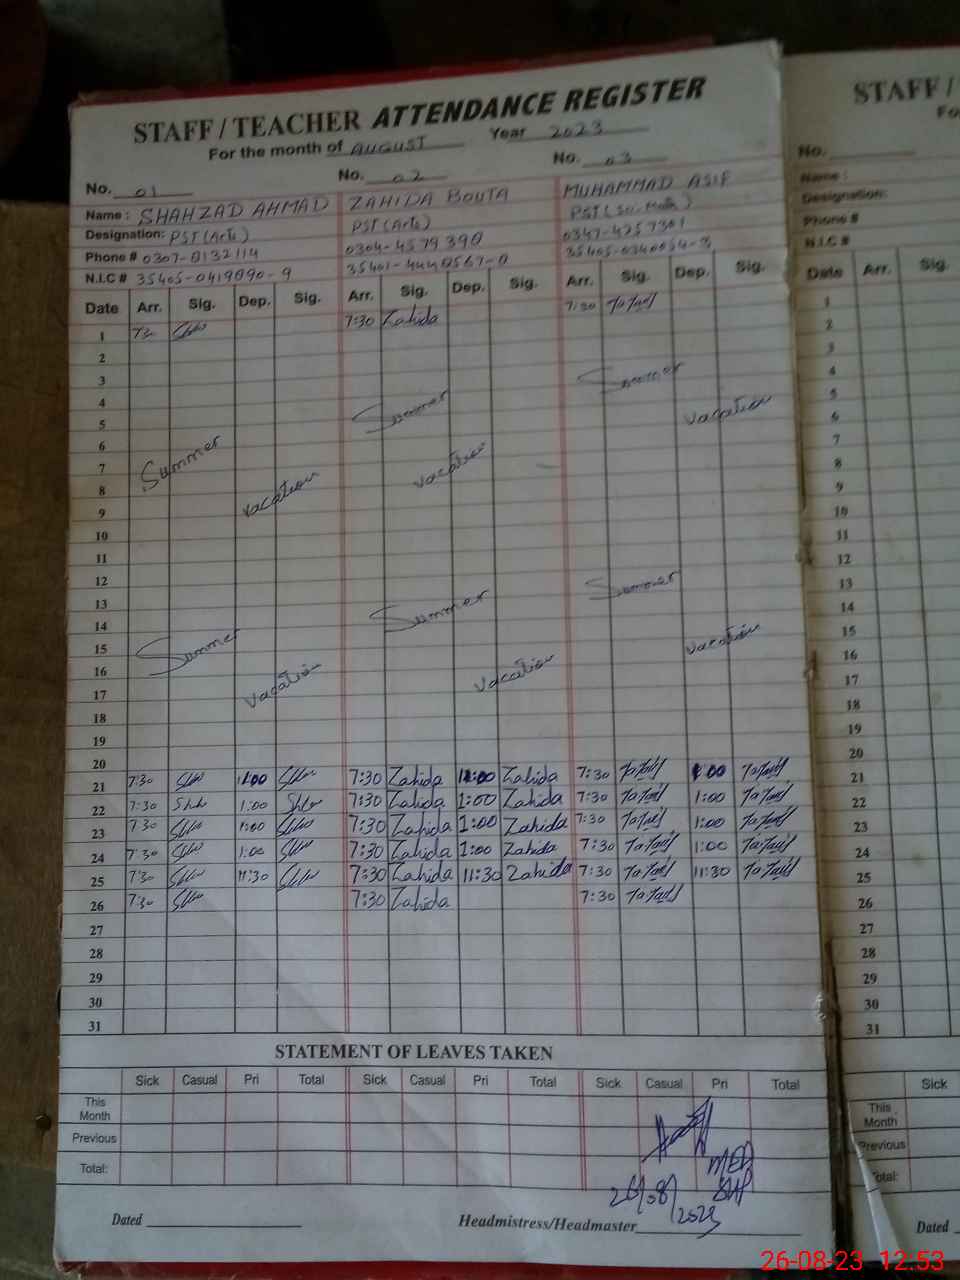 STAFF / TEACHER ATTENDANCE REGISTER
For the month of AUGUST Year 2023
No. 01 No. 02 No. 03
Name : SHAHZAD AHMAD ZAHIDA BOUTA MUHAMMAD ASIF
Designation: PST (Arts) PST (Arts) PST (Sci-Math)
Phone # 0307-0132114 0304-4579390 0347-4257301
N.I.C # 35405-0419090-9 35401-4440567-0
Date Arr. Sig. Dep. Sig. Arr. Sig. Dep. Sig. Arr. Sig. Dep. Sig.
1 7:30 7:30 Zahida 7:30
2
3
4 Summer Summer
5 vacation
6
7 Summer vacation
8
9 vacation
10
11
12
13 Summer
14 Summer
15 Summer vacation
16 vacation
17 vacation
18
19
20
21 7:30 1:00 7:30 Zahida 1:00 Zahida 7:30 1:00
22 7:30 1:00 7:30 Zahida 1:00 Zahida 7:30 1:00
23 7:30 1:00 7:30 Zahida 1:00 Zahida 7:30 1:00
24 7:30 1:00 7:30 Zahida 1:00 Zahida 7:30 1:00
25 7:30 11:30 7:30 Zahida 11:30 Zahida 7:30 11:30
26 7:30 7:30 Zahida 7:30
27
28
29
30
31
STATEMENT OF LEAVES TAKEN
Sick Casual Pri Total Sick Casual Pri Total Sick Casual Pri Total
This Month
Previous
Total:
26/08/2023
Dated Headmistress/Headmaster
STAFF /
Fo
No.
Name :
Designation:
Phone #
N.I.C #
Date Arr. Sig.
1
2
3
4
5
6
7
8
9
10
11
12
13
14
15
16
17
18
19
20
21
22
23
24
25
26
27
28
29
30
31
Sick
This Month
Previous
Total:
Dated
26-08-23 12:53